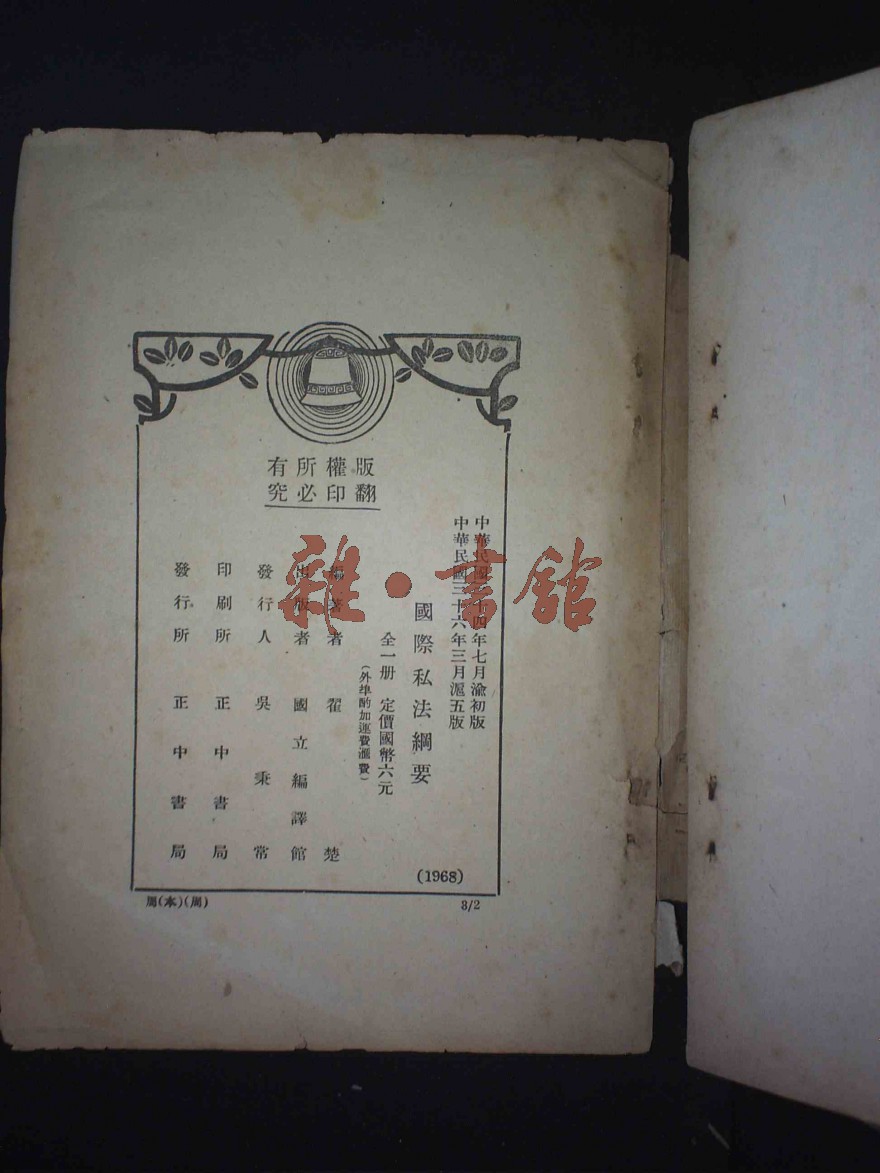 版權所有
翻印必究
中華民國三十四年七月渝初版
中華民國三十六年三月滬五版
國際私法綱要
全一册 定價國幣六元
(外埠酌加運費滙費)
編著者 翟楚
出版者 國立編譯館
發行人 吳秉常
印刷所 正中書局
發行所 正中書局
(1968)
周(本)(周)
3/2
雜·書館